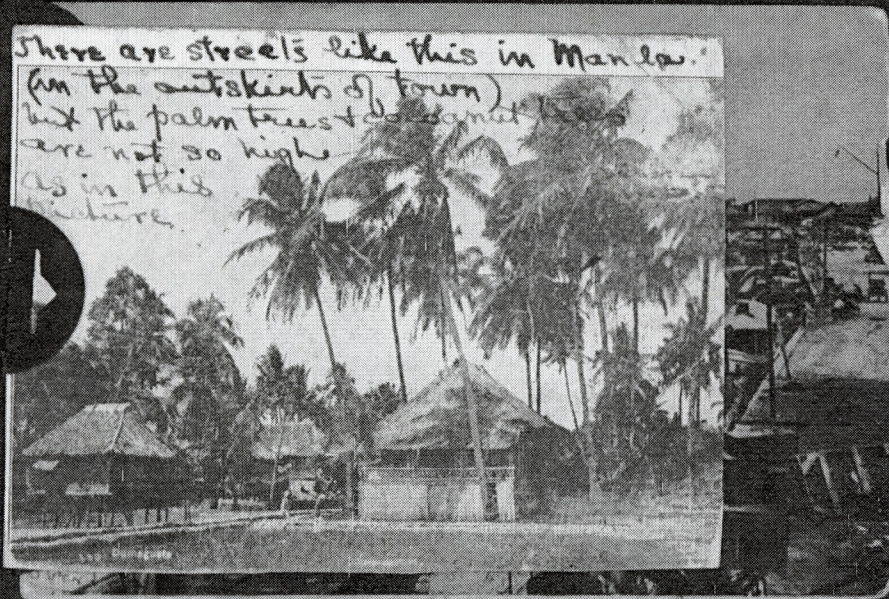 There are streets like this in Manila.
(in the outskirts of town)
but the palm trees & cocoanut trees
are not so high
as in this
Picture.
Dumaguete